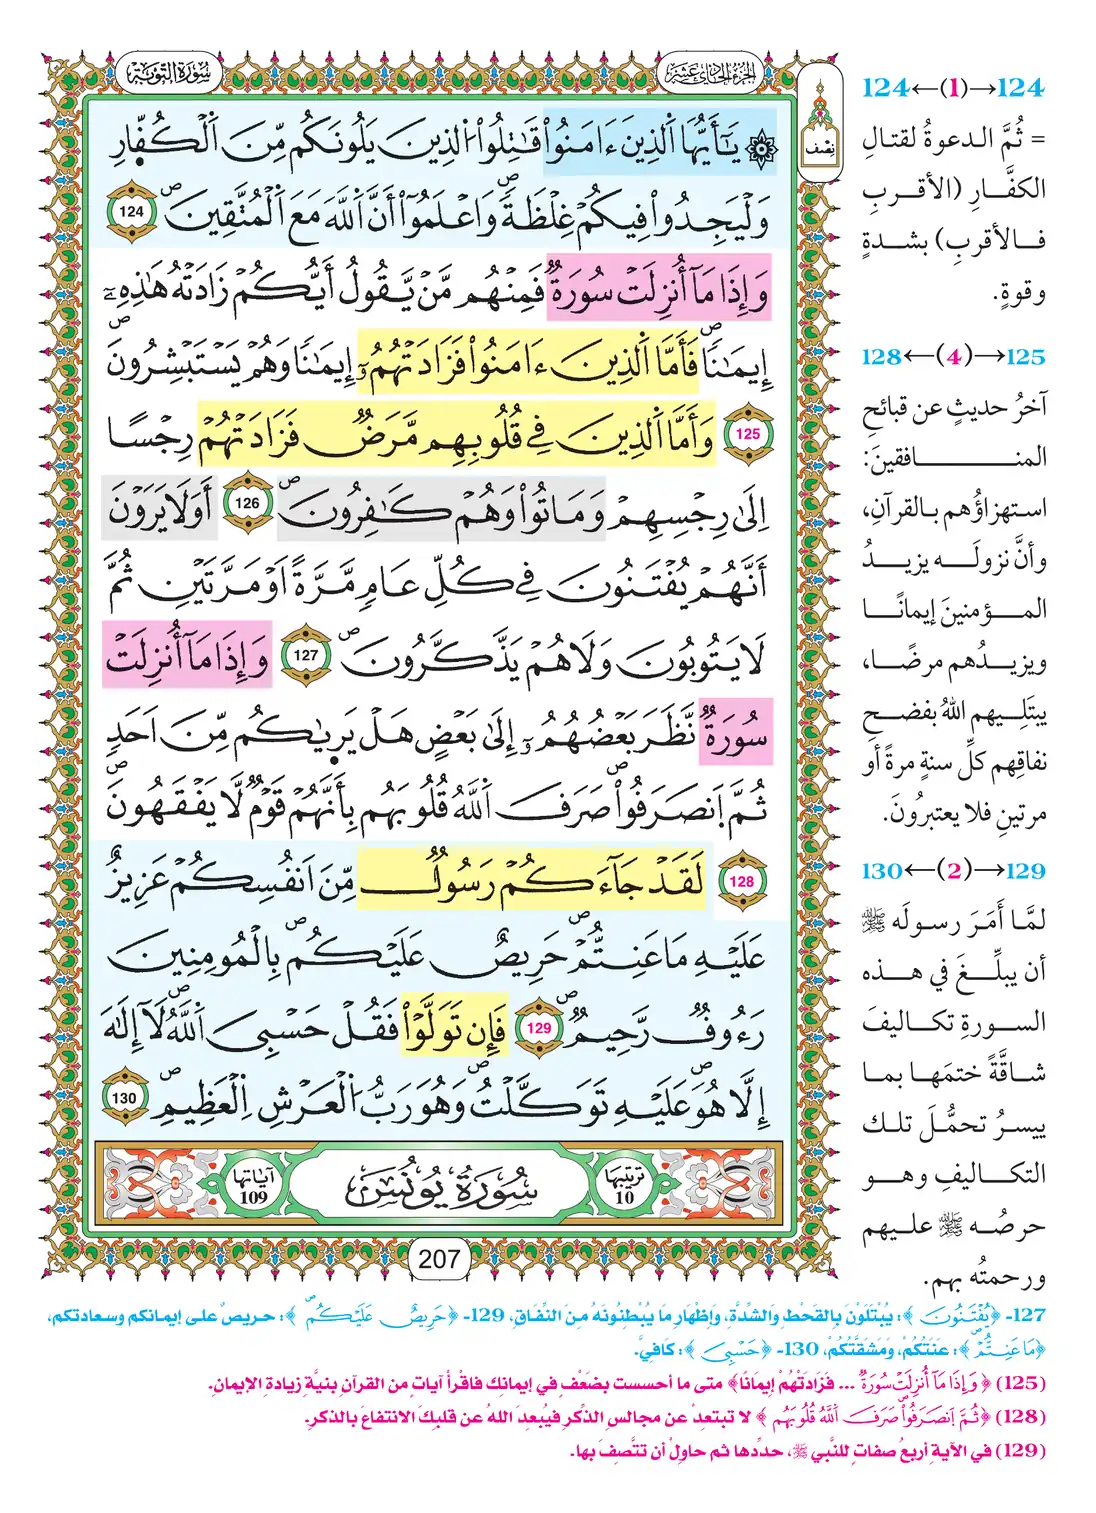 سُورَةُ التَّوْبَةِ
الجزء الحادي عشر
نِصْف
۞ يَٰٓأَيُّهَا اَ۬لذِينَ ءَامَنُواْ قَٰتِلُواْ اُ۬لذِينَ يَلُونَكُم مِّنَ اَ۬لْكُفّ۪ارِ
وَلْيَجِدُواْ فِيكُمْ غِلْظَةٗۖ وَاعْلَمُوٓاْ أَنَّ اَ۬للَّهَ مَعَ اَ۬لْمُتَّقِينَۖ 124
وَإِذَا مَآ أُنزِلَتْ سُورَةٞ فَمِنْهُم مَّنْ يَّقُولُ أَيُّكُمْ زَادَتْهُ هَٰذِهِۦٓ
إِيمَٰناٗۖ فَأَمَّا اَ۬لذِينَ ءَامَنُواْ فَزَادَتْهُمُۥٓ إِيمَٰناٗ وَهُمْ يَسْتَبْشِرُونَۖ
125 وَأَمَّا اَ۬لذِينَ فِے قُلُوبِهِم مَّرَضٞ فَزَادَتْهُمْ رِجْساً
اِلَىٰ رِجْسِهِمْ وَمَاتُواْ وَهُمْ كَٰفِرُونَۖ 126 أَوَلَا يَرَوْنَ
أَنَّهُمْ يُفْتَنُونَ فِے كُلِّ عَامٖ مَّرَّةً اَوْ مَرَّتَيْنِ ثُمَّ
لَا يَتُوبُونَ وَلَا هُمْ يَذَّكَّرُونَۖ 127 وَإِذَا مَآ أُنزِلَتْ
سُورَةٞ نَّظَرَ بَعْضُهُمُۥٓ إِلَىٰ بَعْضٍ هَلْ يَر۪يٰكُم مِّنَ اَحَدٖ
ثُمَّ اَ۪نصَرَفُواْۖ صَرَفَ اَ۬للَّهُ قُلُوبَهُم بِأَنَّهُمْ قَوْمٞ لَّا يَفْقَهُونَۖ
128 لَقَدْ جَآءَكُمْ رَسُولٞ مِّنَ اَنفُسِكُمْ عَزِيزٌ
عَلَيْهِ مَا عَنِتُّمْۖ حَرِيصٌ عَلَيْكُمۖ بِالْمُومِنِينَ
رَءُوفٞ رَّحِيمٞۖ 129 فَإِن تَوَلَّوْاْ فَقُلْ حَسْبِيَ اَ۬للَّهُۖ لَآ إِلَٰهَ
إِلَّا هُوَۖ عَلَيْهِ تَوَكَّلْتُۖ وَهُوَ رَبُّ اُ۬لْعَرْشِ اِ۬لْعَظِيمِۖ 130
ترتيبها 10 سُورَةُ يُونُسَ آياتها 109
207
124←(1)→124
= ثُمَّ الدعوةُ لقتالِ
الكفَّارِ (الأقربِ
فالأقربِ) بشدةٍ
وقوةٍ.
128←(4)→125
آخرُ حديثٍ عن قبائحِ
المنافقينَ:
استهزاؤُهم بالقرآنِ،
وأنَّ نزولَه يزيدُ
المؤمنينَ إيمانًا
ويزيدُهم مرضًا،
يبتَلِيهم اللهُ بفضحِ
نفاقِهم كلِّ سنةٍ مرةً أو
مرتينِ فلا يعتبرُونَ.
130←(2)→129
لمَّا أَمَرَ رسولَه ﷺ
أن يبلِّغَ في هذه
السورةِ تكاليفَ
شاقَّةً ختمَها بما
ييسرُ تحمُّلَ تلك
التكاليفِ وهو
حرصُه ﷺ عليهم
ورحمتُه بهم.
127- ﴿يُفْتَنُونَ﴾: يُبْتَلَوْنَ بِالقَحْطِ وَالشِّدَّةِ، وَإِظْهَارِ مَا يُبْطِنُونَهُ مِنَ النِّفَاقِ، 129- ﴿حَرِيصٌ عَلَيْكُم﴾: حريصٌ على إيمانكم وسعادتكم،
﴿مَا عَنِتُّمْ﴾: عَنَتُكُمْ، وَمَشَقَّتُكُمْ، 130- ﴿حَسْبِيَ﴾: كَافِيَّ.
(125) ﴿وَإِذَا مَآ أُنزِلَتْ سُورَةٞ ... فَزَادَتْهُمْ إِيمَانًا﴾ متى ما أحسست بضَعْفٍ في إيمانِك فاقْرأْ آياتٍ من القرآنِ بنيَّةِ زيادةِ الإيمانِ.
(128) ﴿ثُمَّ اَ۪نصَرَفُواْۖ صَرَفَ اَ۬للَّهُ قُلُوبَهُم﴾ لا تبتعدْ عن مجالسِ الذِّكرِ فيُبعِدَ اللهُ عن قلبِكَ الانتفاعَ بالذكرِ.
(129) في الآيةِ أربعُ صفاتٍ للنَّبي ﷺ، حدِّدها ثم حاولْ أن تتَّصفَ بها.